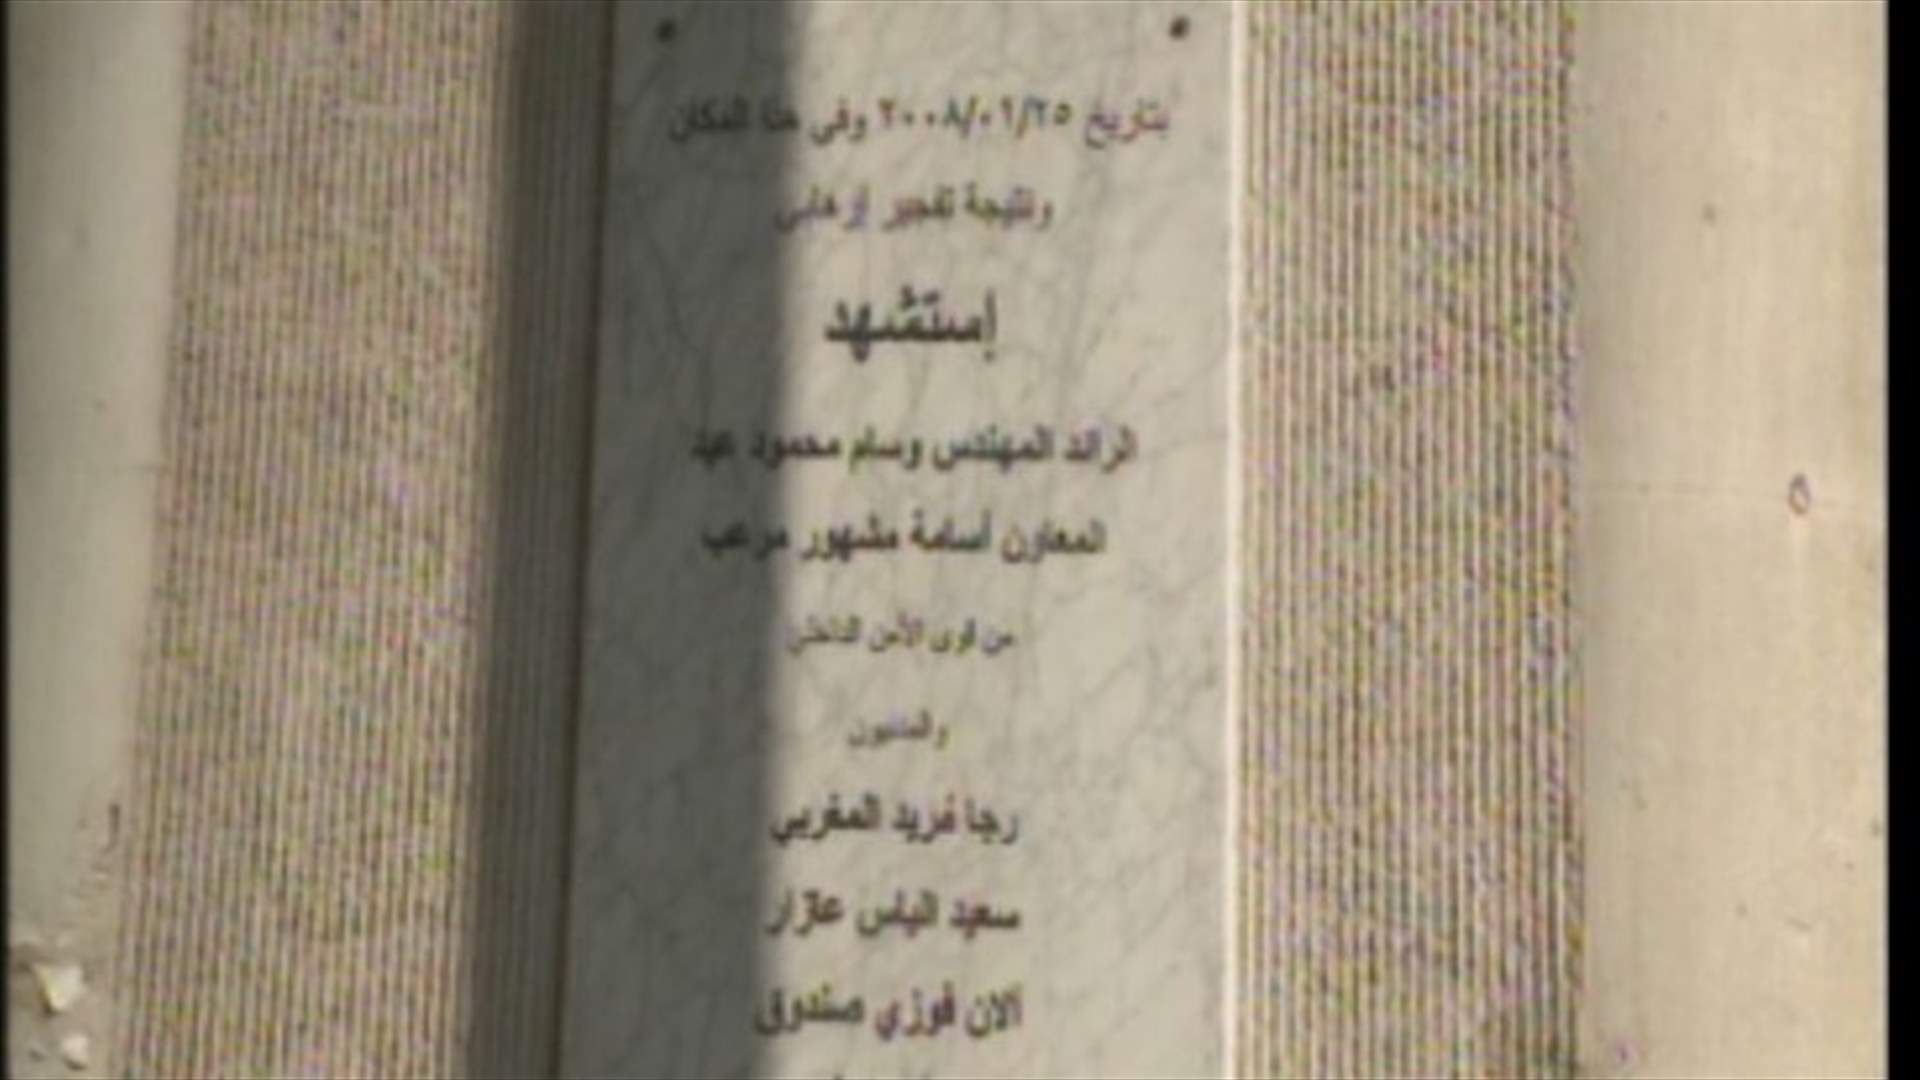 بتاريخ ٢٠٠٨/٠١/٢٥ وفي هذا المكان
ونتيجة تفجير إرهابي
إستشهد
الرائد المهندس وسام محمود عيد
المعاون أسامة مشهور مرعب
من قوى الأمن الداخلي
والمدنيون
رجا فريد المغربي
سعيد الياس عازار
الان فوزي صندوق